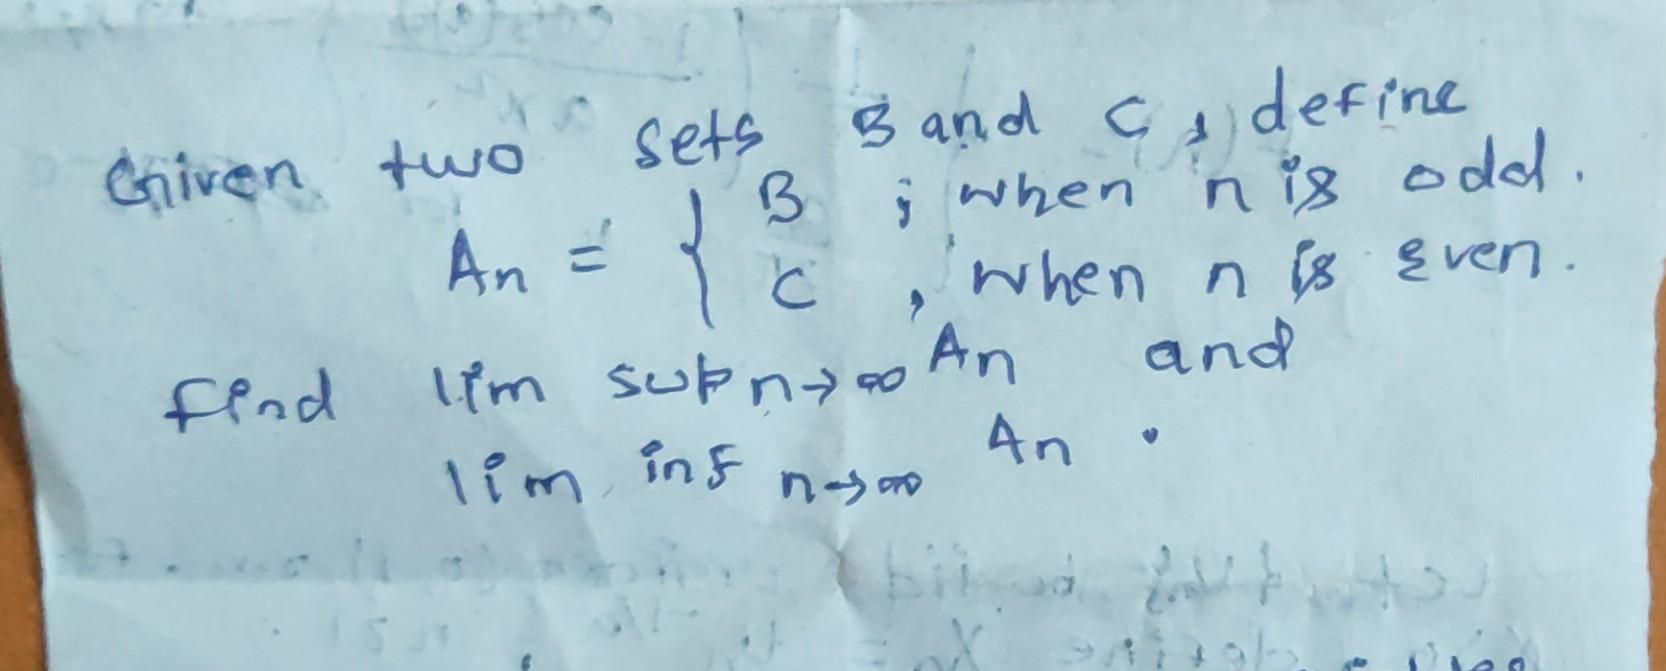 Given two sets B and C, define
An = { B ; when n is odd.
C , when n is Even.
find lim sup n→∞ An and
lim inf n→∞ An .